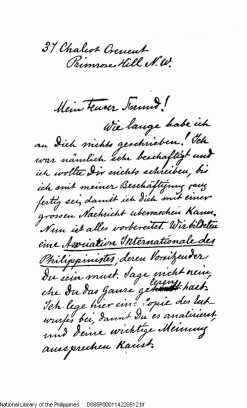 37 Chalcot Crescent
Primrose Hill N.W.
Mein teurer Freund!
Wie lange habe ich
an Dich nichts geschrieben! Ich
war nämlich sehr beschäftigt und
ich wollte Dir nichts schreiben, bis
ich mit meiner Beschäftigung ganz
fertig sei, damit ich Dich mit einer
grossen Nachricht überraschen kann.
Nun ist alles vorbereitet. Wir bilden
eine Association Internationale des
Philippinistes, deren Vorsitzender
Du sein musst. Sage nicht nein,
ehe Du das Ganze gelesen hast.
Ich lege hier eine Copie des Ent-
wurfes bei, damit Du es analisirst
und Deine wichtige Meinung
aussprechen kanst.
National Library of the Philippines D085P000114220512.tif